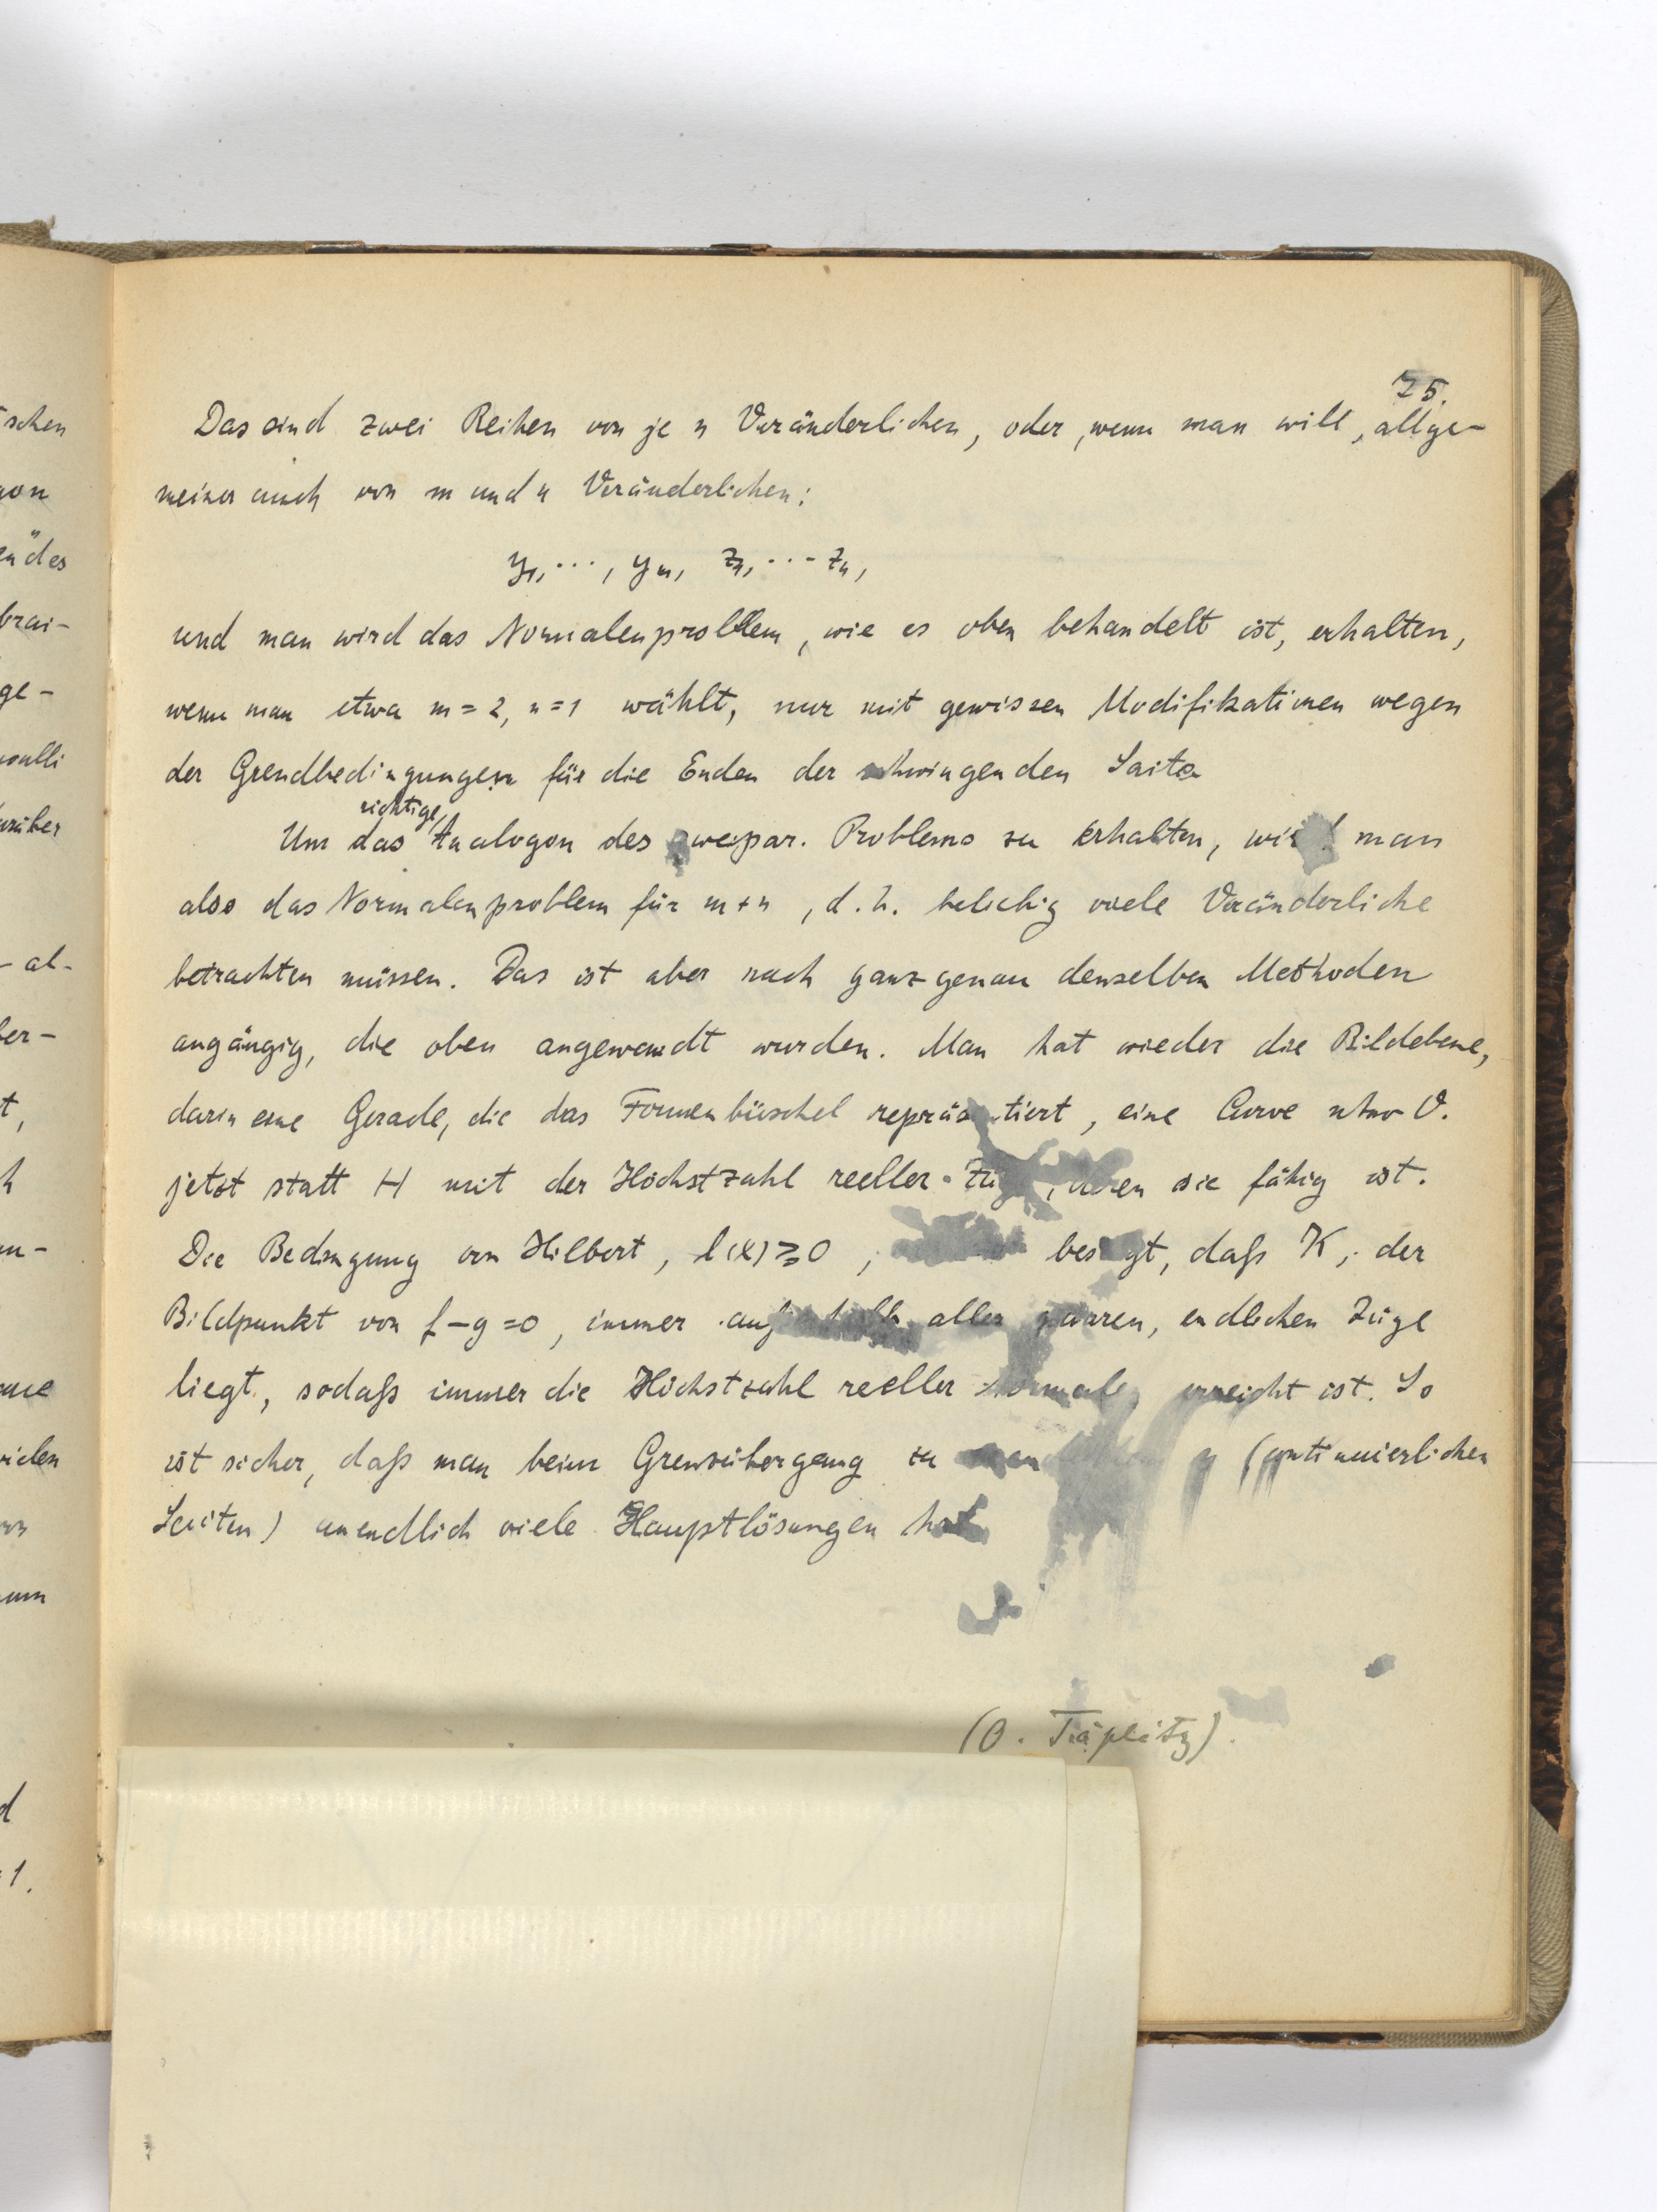 75.
Das sind zwei Reihen von je n Veränderlichen, oder, wenn man will, allge-
meiner auch von m und n Veränderlichen:
y₁, ..., yₘ, z₁, ... zₙ,
und man wird das Normalenproblem, wie es oben behandelt ist, erhalten,
wenn man etwa m = 2, n = 1 wählt, nur mit gewissen Modifikationen wegen
der Grendbedingungen für die Enden der schwingenden Saite
richtige
Um das Analogon des zweipar. Problems zu erhalten, wird man
also das Normalenproblem für m + n, d. h. beliebig viele Veränderliche
betrachten müssen. Das ist aber nach ganz genau denselben Methoden
angängig, die oben angewandt wurden. Man hat wieder die Bildebene,
darin eine Gerade, die das Formenbüschel repräsentiert, eine Curve
jetzt statt H mit der Höchstzahl reeller Züge, deren sie fähig ist.
Die Bedingung von Hilbert, l(x) ≥ 0, besagt, daß K, der
Bildpunkt von f – g = 0, immer außerhalb aller paaren, endlichen Züge
liegt, sodaß immer die Höchstzahl reeller Normalen erreicht ist. So
ist sicher, daß man beim Grenzübergang zu (continuierlichen
Saiten) unendlich viele Hauptlösungen hat
(O. Täplitz).
schen
gon
des
brai-
ge-
noulli
rüber
al-
ber-
t,
h
un-
vielen
um
d
1.